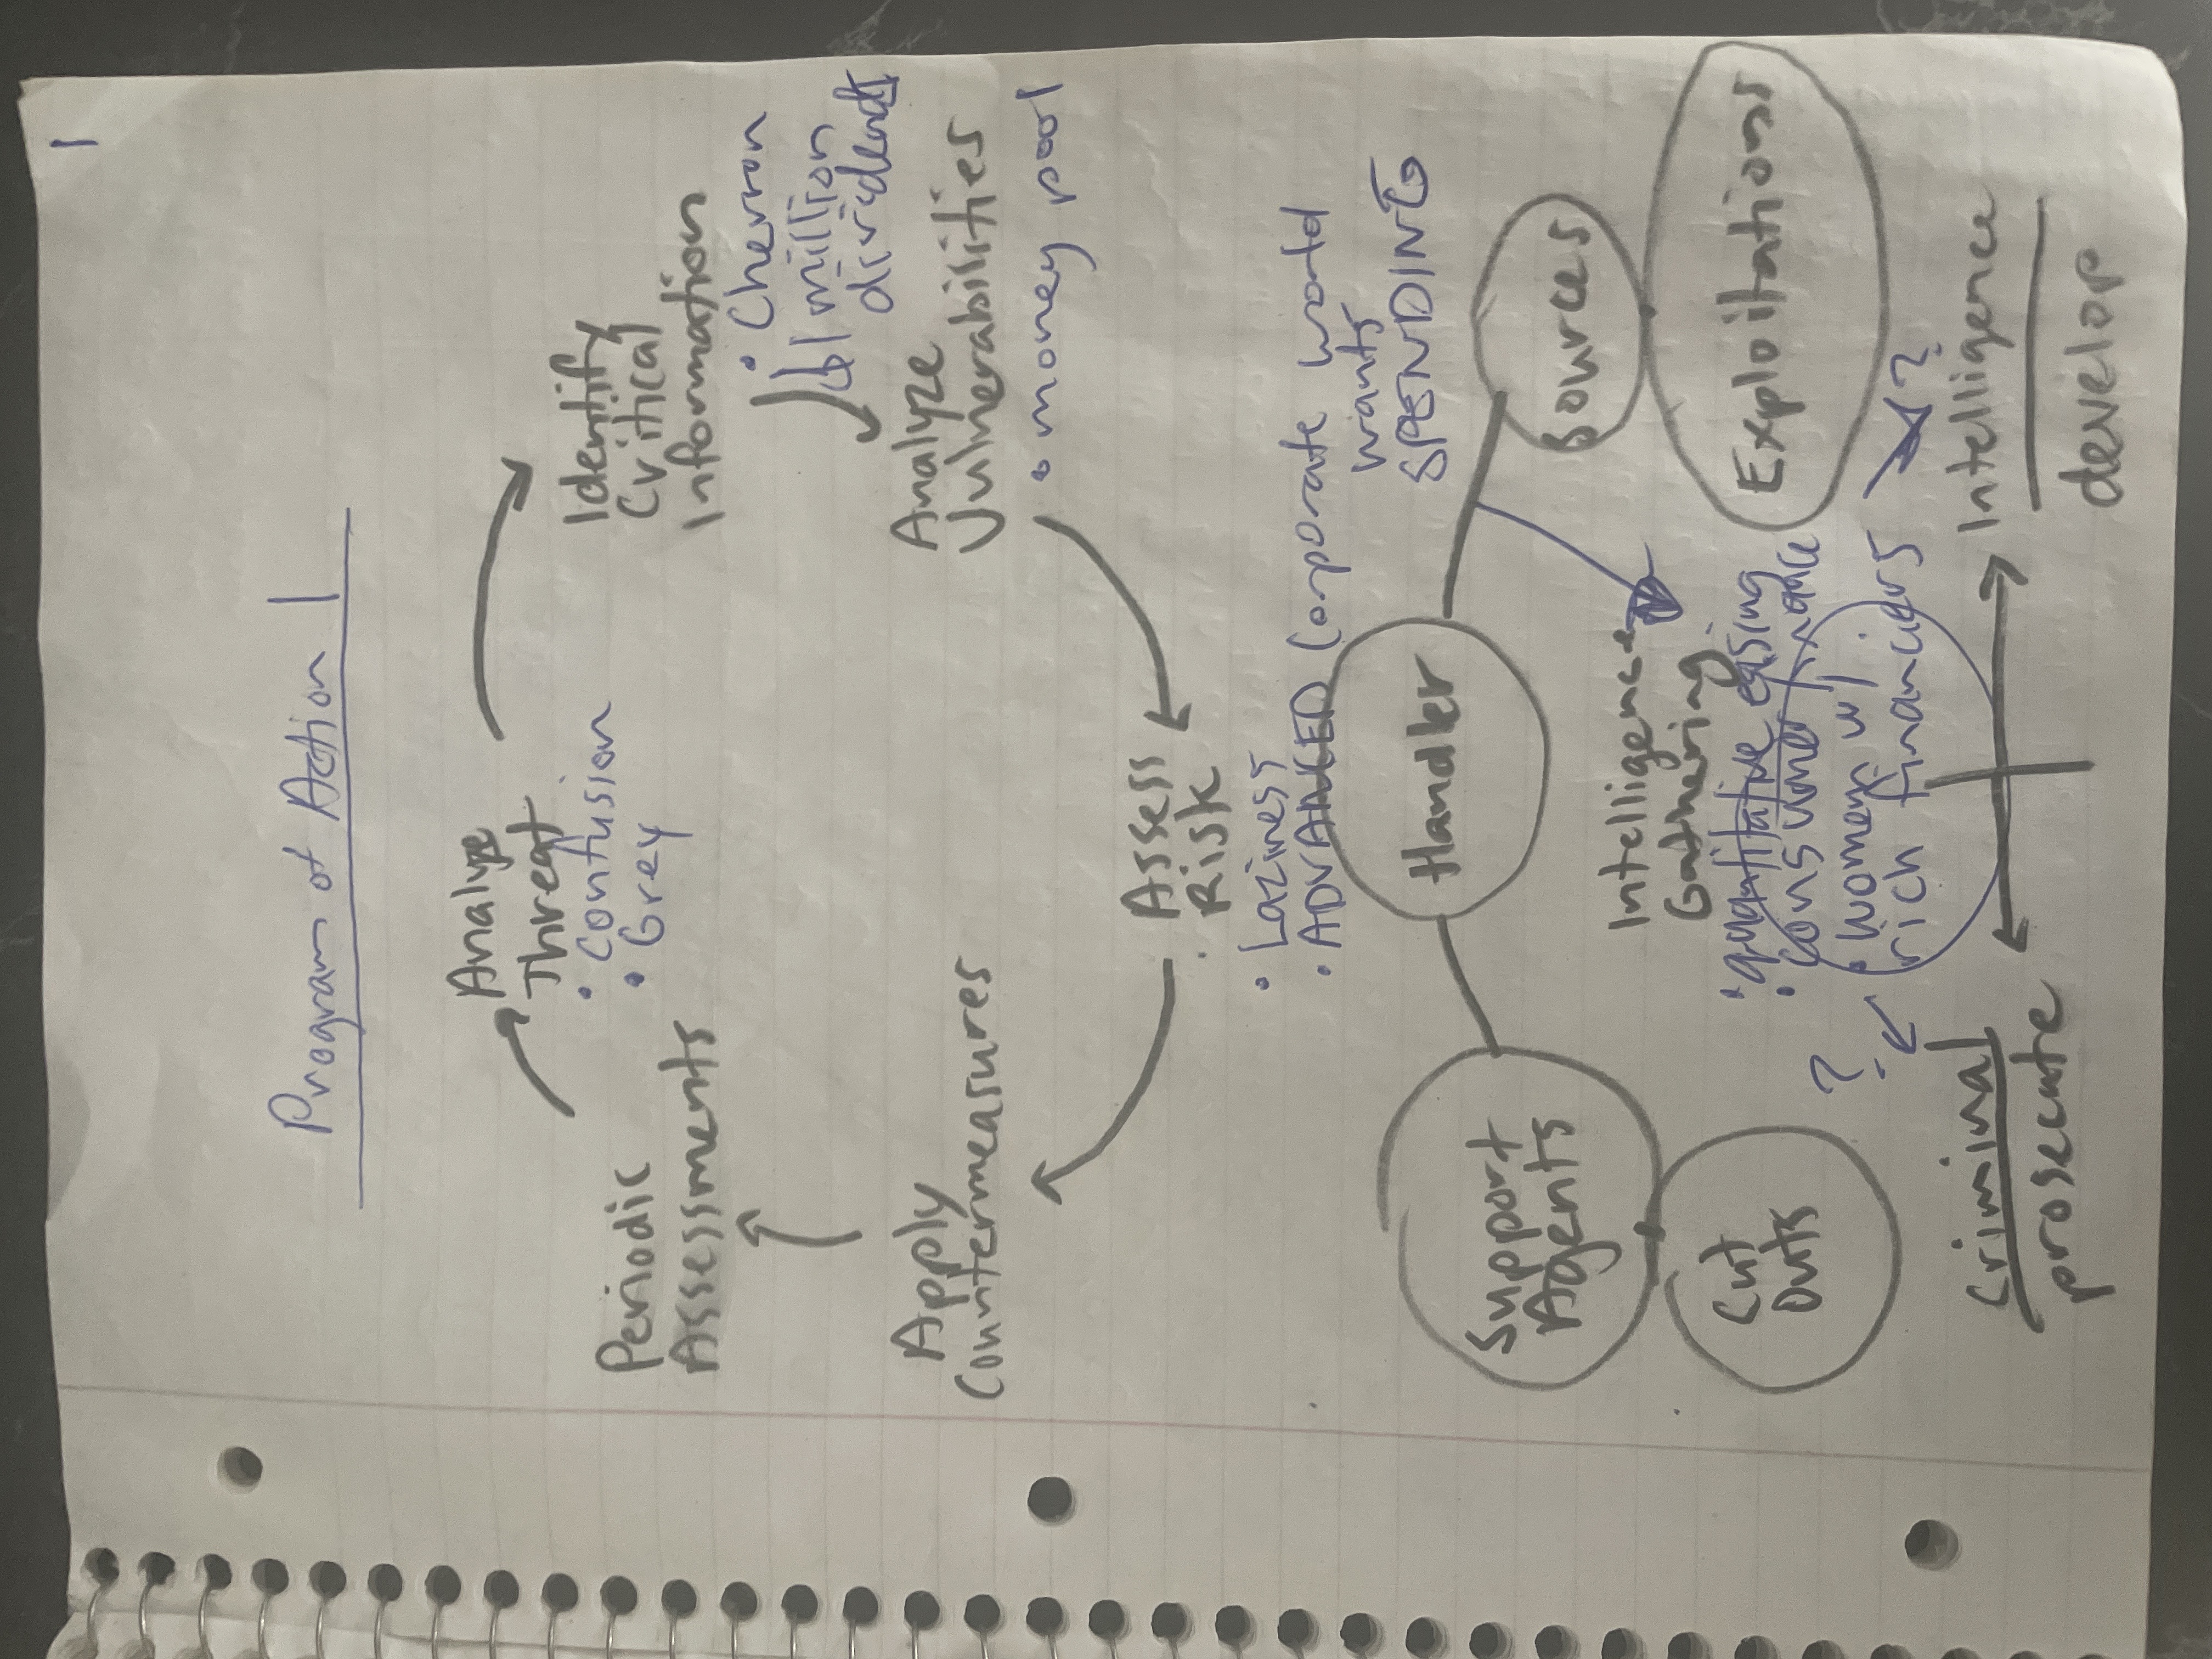 1
Program of Action 1
Analyze
Threat
• Confusion
• Grey
Identify
Critical
Information
• Chevron
$1 million
dividends
Analyze
Vulnerabilities
• money pool
Assess
Risk
• Laziness
• ADVANCED Corporate world
wants
SPENDING
Apply
Countermeasures
Periodic
Assessments
Handler
Support
Agents
Cut
Outs
Sources
Exploitations
Intelligence
Gathering
• quantitative easing
• consumer finance
• women w/
rich financiers
?
?
Criminal
prosecute
Intelligence
develop